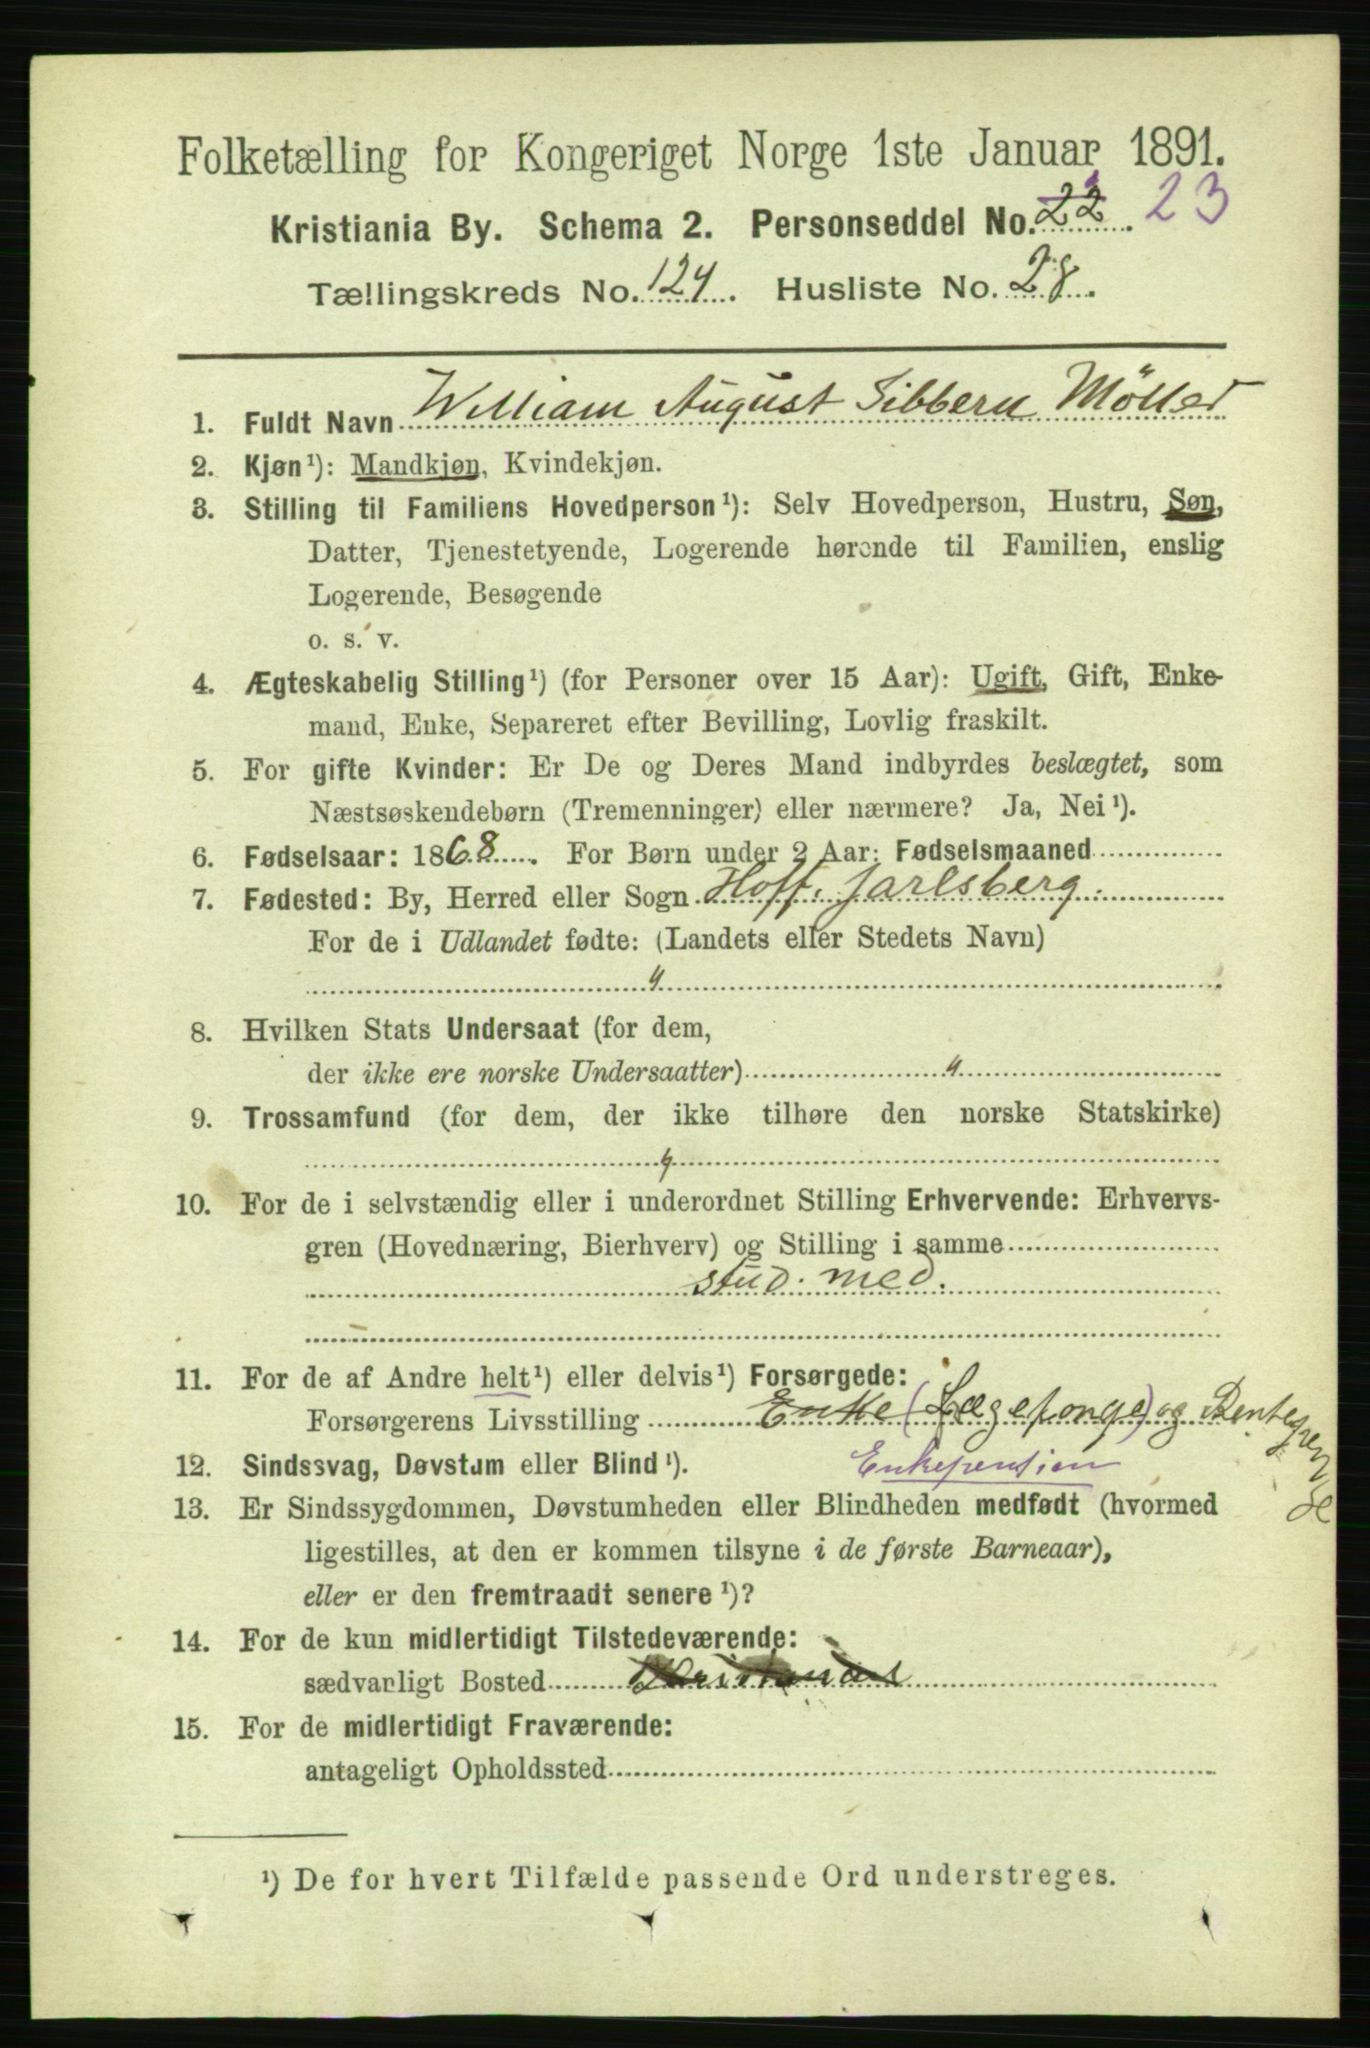 Folketælling for Kongeriget Norge 1ste Januar 1891.
Kristiania By. Schema 2. Personseddel No. 22. 23
Tællingskreds No. 124. Husliste No. 28.
1. Fuldt Navn William August Sibbern Möller
2. Kjøn¹): Mandkjøn, Kvindekjøn.
3. Stilling til Familiens Hovedperson¹): Selv Hovedperson, Hustru, Søn,
Datter, Tjenestetyende, Logerende hørende til Familien, enslig
Logerende, Besøgende
o. s. v.
4. Ægteskabelig Stilling¹) (for Personer over 15 Aar): Ugift, Gift, Enke-
mand, Enke, Separeret efter Bevilling, Lovlig fraskilt.
5. For gifte Kvinder: Er De og Deres Mand indbyrdes beslægtet, som
Næstsøskendebørn (Tremenninger) eller nærmere? Ja, Nei¹).
6. Fødselsaar: 1868. For Børn under 2 Aar: Fødselsmaaned
7. Fødested: By, Herred eller Sogn Hoff. Jarlsberg.
For de i Udlandet fødte: (Landets eller Stedets Navn)
"
8. Hvilken Stats Undersaat (for dem,
der ikke ere norske Undersaatter) "
9. Trossamfund (for dem, der ikke tilhøre den norske Statskirke)
"
10. For de i selvstændig eller i underordnet Stilling Erhvervende: Erhvervs-
gren (Hovednæring, Bierhverv) og Stilling i samme
stud. med.
11. For de af Andre helt¹) eller delvis¹) Forsørgede:
Forsørgerens Livsstilling Enke (Lægepenge) og Rentepenge
Enkepension
12. Sindssvag, Døvstum eller Blind¹).
13. Er Sindssygdommen, Døvstumheden eller Blindheden medfødt (hvormed
ligestilles, at den er kommen tilsyne i de første Barneaar),
eller er den fremtraadt senere¹)?
14. For de kun midlertidigt Tilstedeværende:
sædvanligt Bosted
15. For de midlertidigt Fraværende:
antageligt Opholdssted
¹) De for hvert Tilfælde passende Ord understreges.